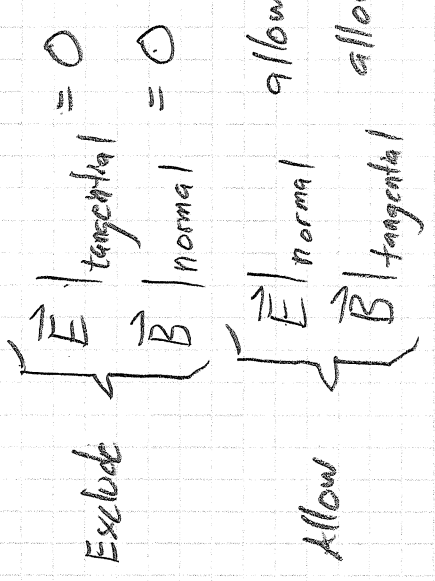 Exclude { E⃗ | tangential = 0
B⃗ | normal = 0
Allow { E⃗ | normal allow
B⃗ | tangential allo